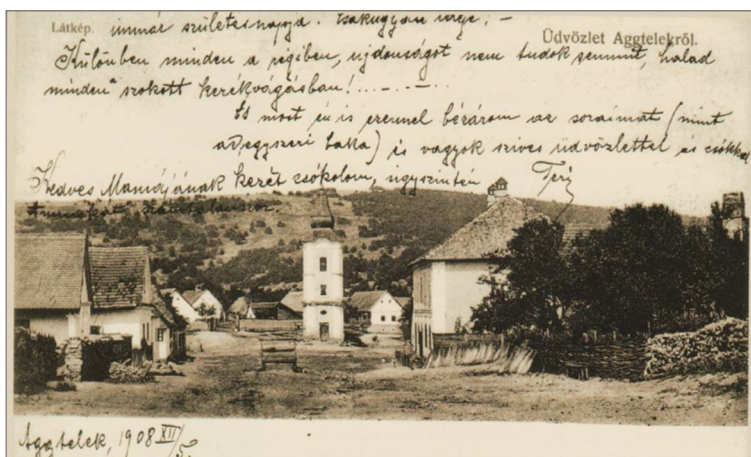 Látkép.
Üdvözlet Aggtelekről.
immár születésnapja. Csakugyan
Különben minden a régiben, ujdonságot nem tudok semmit, halad
minden "szokott kerékvágásban!...-..-..
És most én is ezennel bézárom az soraimat (mint
az egyszeri baka) és vagyok szives üdvözlettel és csókkal
Teri
Kedves Mamájának kezét csókolom, ugyszintén
Aggtelek, 1908 XII/5.